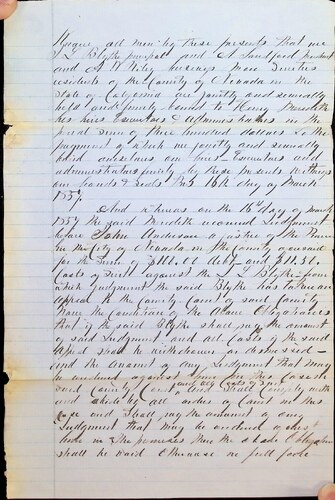 Know all men by these presents that we
L L Blythe principal and A Sandford
and A W Riley sureties
residents of the County of Nevada in the
State of California are jointly and severally
held and firmly bound to Henry Meredith
his heirs Executors & Administrators in the
penal sum of three hundred dollars to the
payment of which we jointly and severally
bind ourselves our heirs Executors and
administrators firmly by these presents Witness
our hands & Seals this 16th day of March
1857
And whereas on the 16th day of March
1857 the said Meredith recovered Judgment
before John Anderson a justice of the Peace
in the City of Nevada in the County aforesaid
for the sum of debt and
Costs of Suit against the L L Blythe from
which judgment the said Blythe has taken an
appeal to the County Court of said County
Now the Condition of the Above Obligation is
that if the said Blythe shall pay the amount
of said Judgment and all Costs if the said
Appeal shall be withdrawn or dismissed
and the amount of any Judgment that may
be rendered against him in the said
said County Court and all Costs and shall Comply with
and abide by all orders of Court in this
case and shall pay the amount of any
Judgment that may be rendered against
him in the premises then the above Obligation
shall be void Otherwise in full force